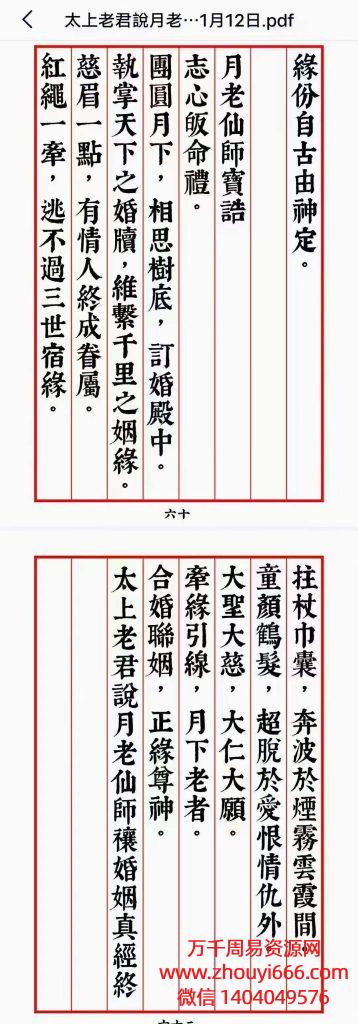 太上老君說月老…1月12日.pdf
緣份自古由神定。
月老仙師寶誥
志心皈命禮。
團圓月下，相思樹底，訂婚殿中。
執掌天下之婚牘，維繫千里之姻緣。
慈眉一點，有情人終成眷屬。
紅繩一牽，逃不過三世宿緣。
六十
拄杖巾囊，奔波於煙霧雲霞間。
童顏鶴髮，超脫於愛恨情仇外。
大聖大慈，大仁大願。
牽緣引線，月下老者。
合婚聯姻，正緣尊神。
太上老君說月老仙師禳婚姻真經終
万千周易资源网
www.zhouyi666.com
微信 1404049576